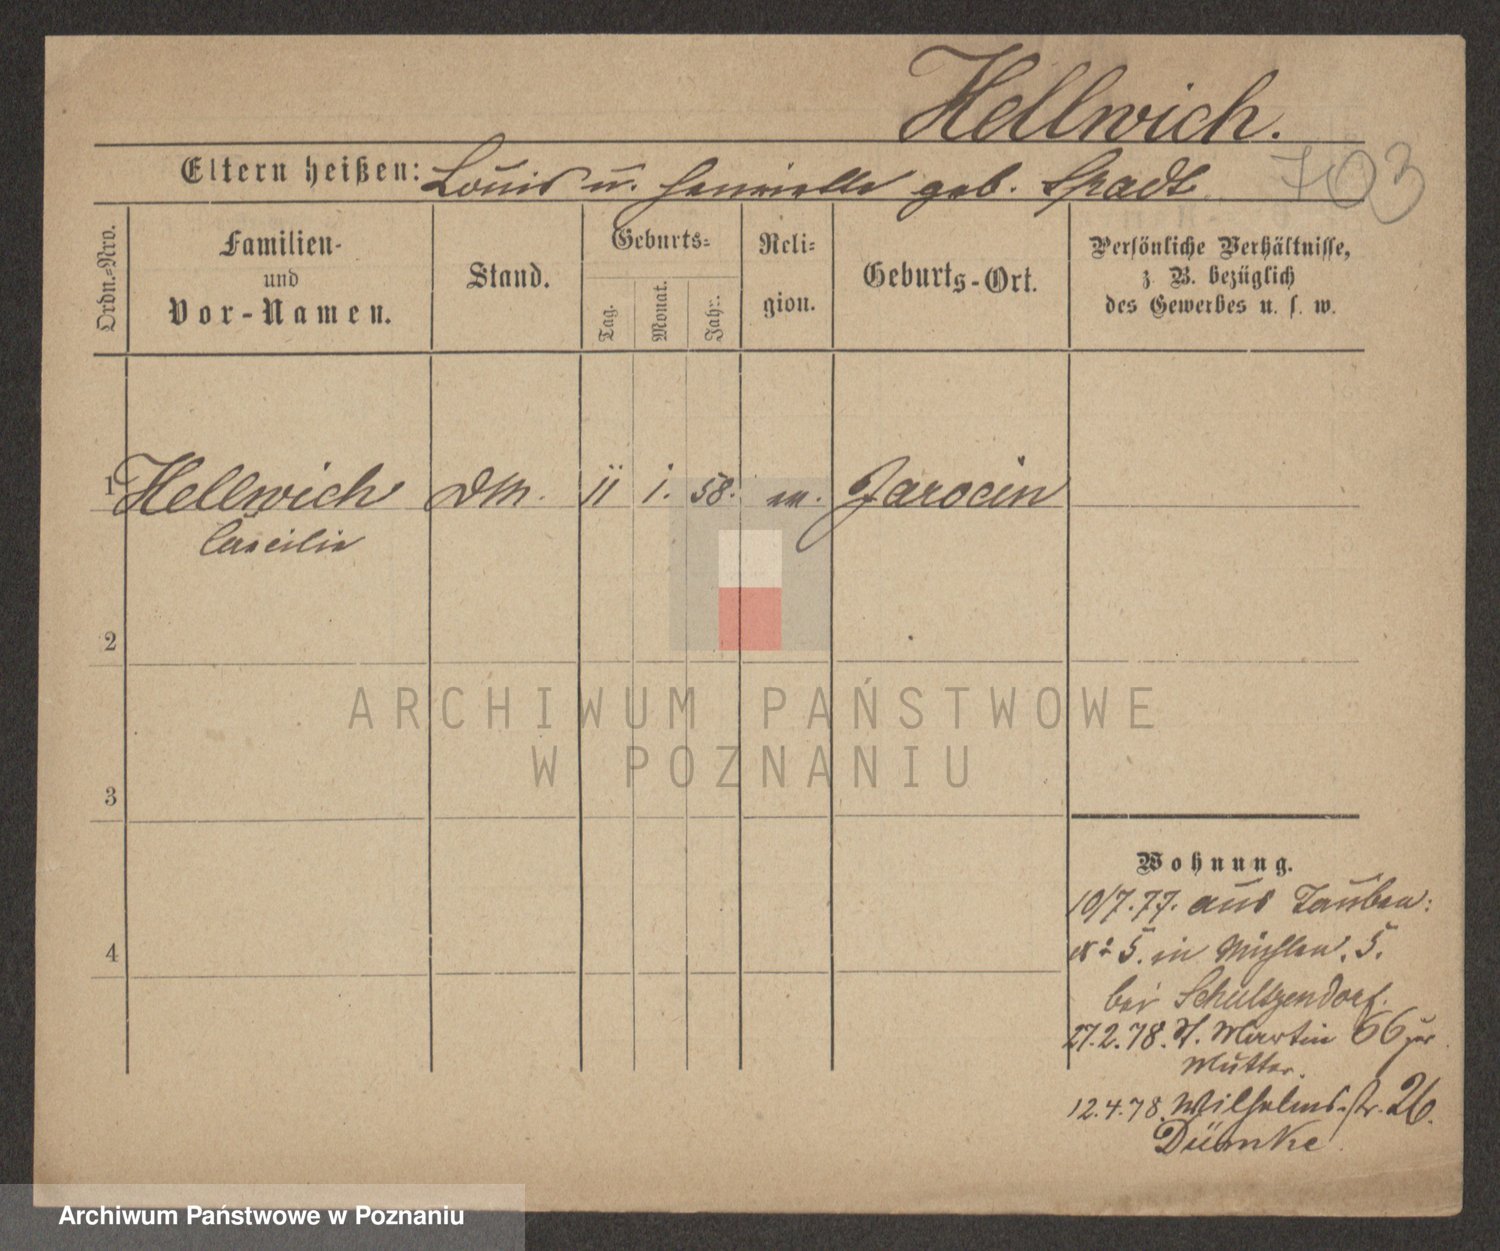 Hellwich.
Eltern heißen: Louis u. Henriette geb. Spadt
703
Ordn.=Nro.
Familien-
und
Vor-Namen.
Stand.
Geburts=
Tag.
Monat.
Jahr.
Reli=
gion.
Geburts-Ort.
Persönliche Verhältnisse,
z B. bezüglich
des Gewerbes u. s. w.
1 Hellwich DM. 11 1. 58. Jarocin
Caecilie
2
3
4
ARCHIWUM PAŃSTWOWE
W POZNANIU
Wohnung.
10/7.77. aus Tauben:
5. in Mühlen. 5.
bei Schultzendorf.
27.2.78. St. Martin 66 zur
Mutter.
12.4.78. Wilhelms-str. 26.
Dümke
Archiwum Państwowe w Poznaniu